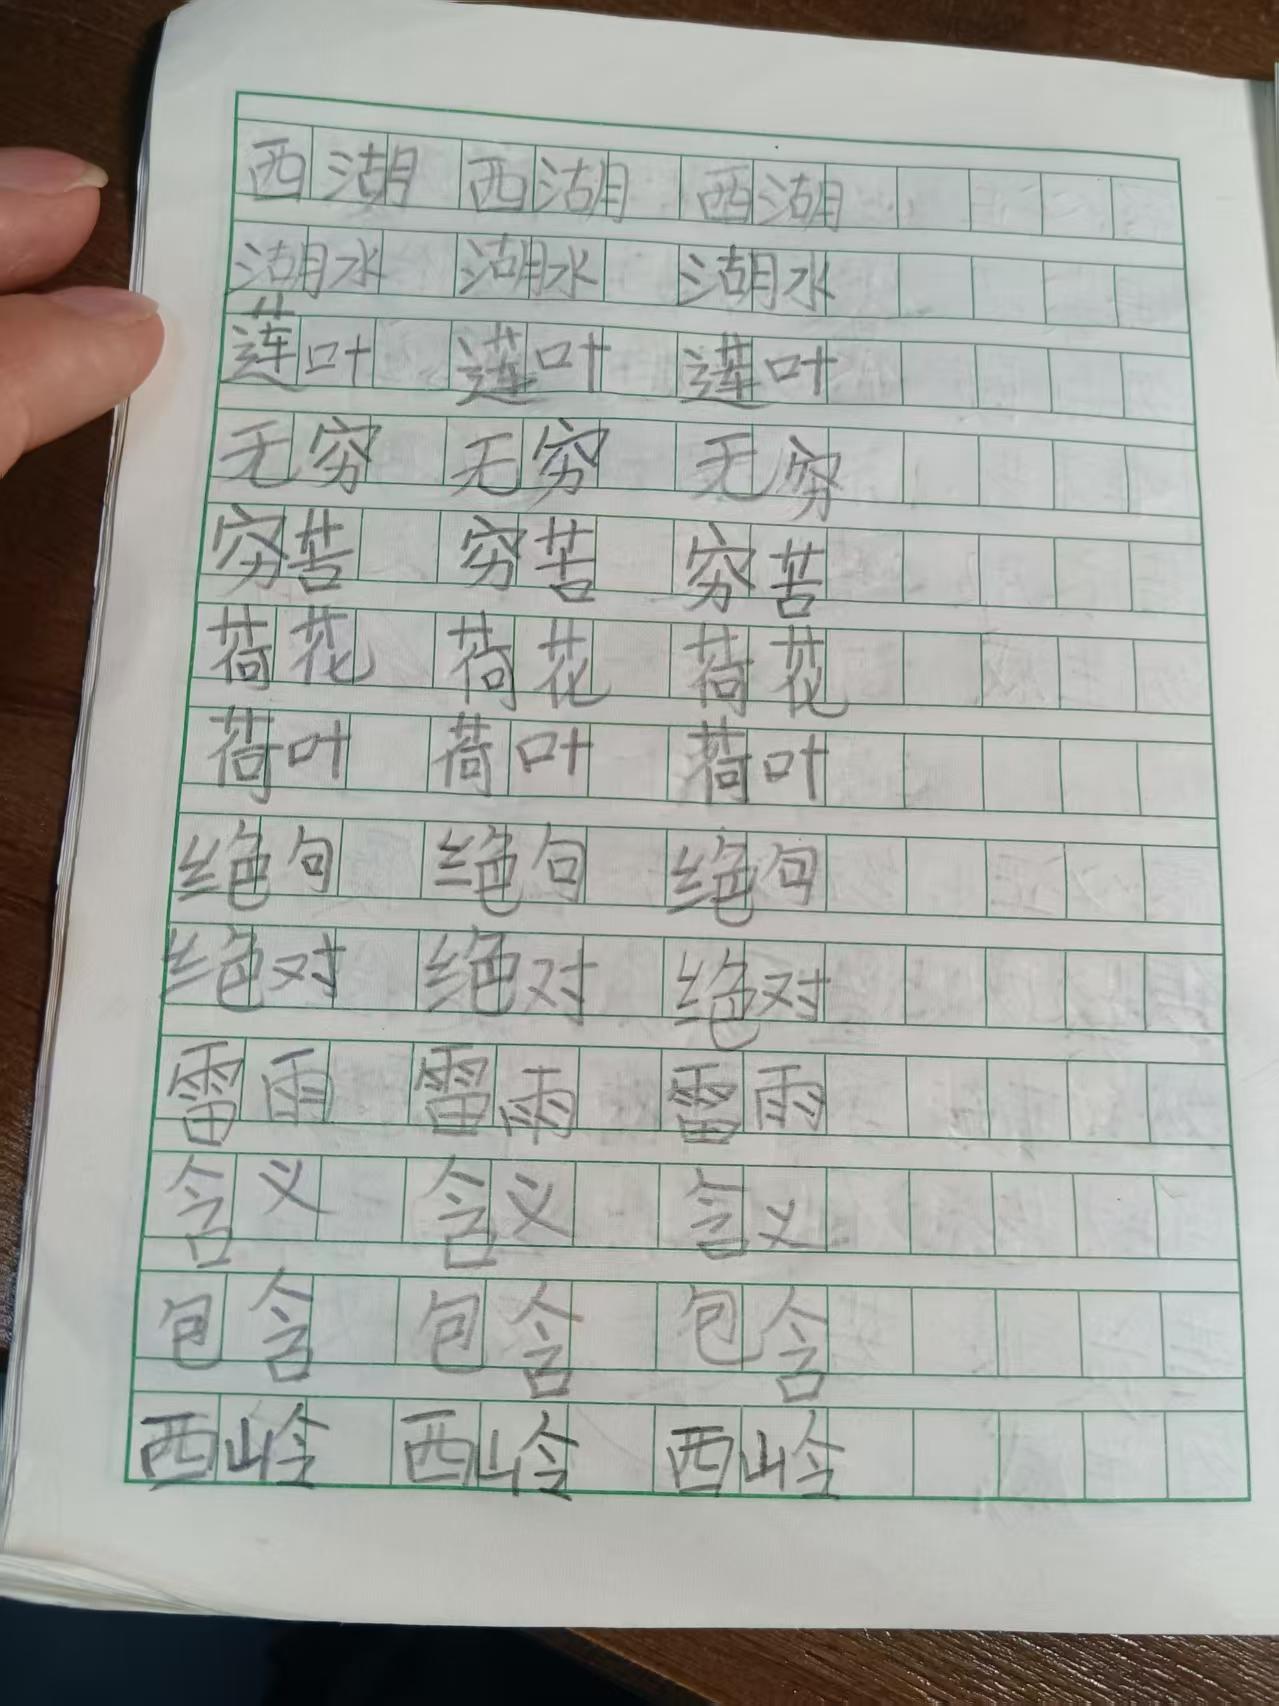 西湖 西湖 西湖
湖水 湖水 湖水
莲叶 莲叶 莲叶
无穷 无穷 无穷
穷苦 穷苦 穷苦
荷花 荷花 荷花
荷叶 荷叶 荷叶
绝句 绝句 绝句
绝对 绝对 绝对
雷雨 雷雨 雷雨
含义 含义 含义
包含 包含 包含
西岭 西岭 西岭